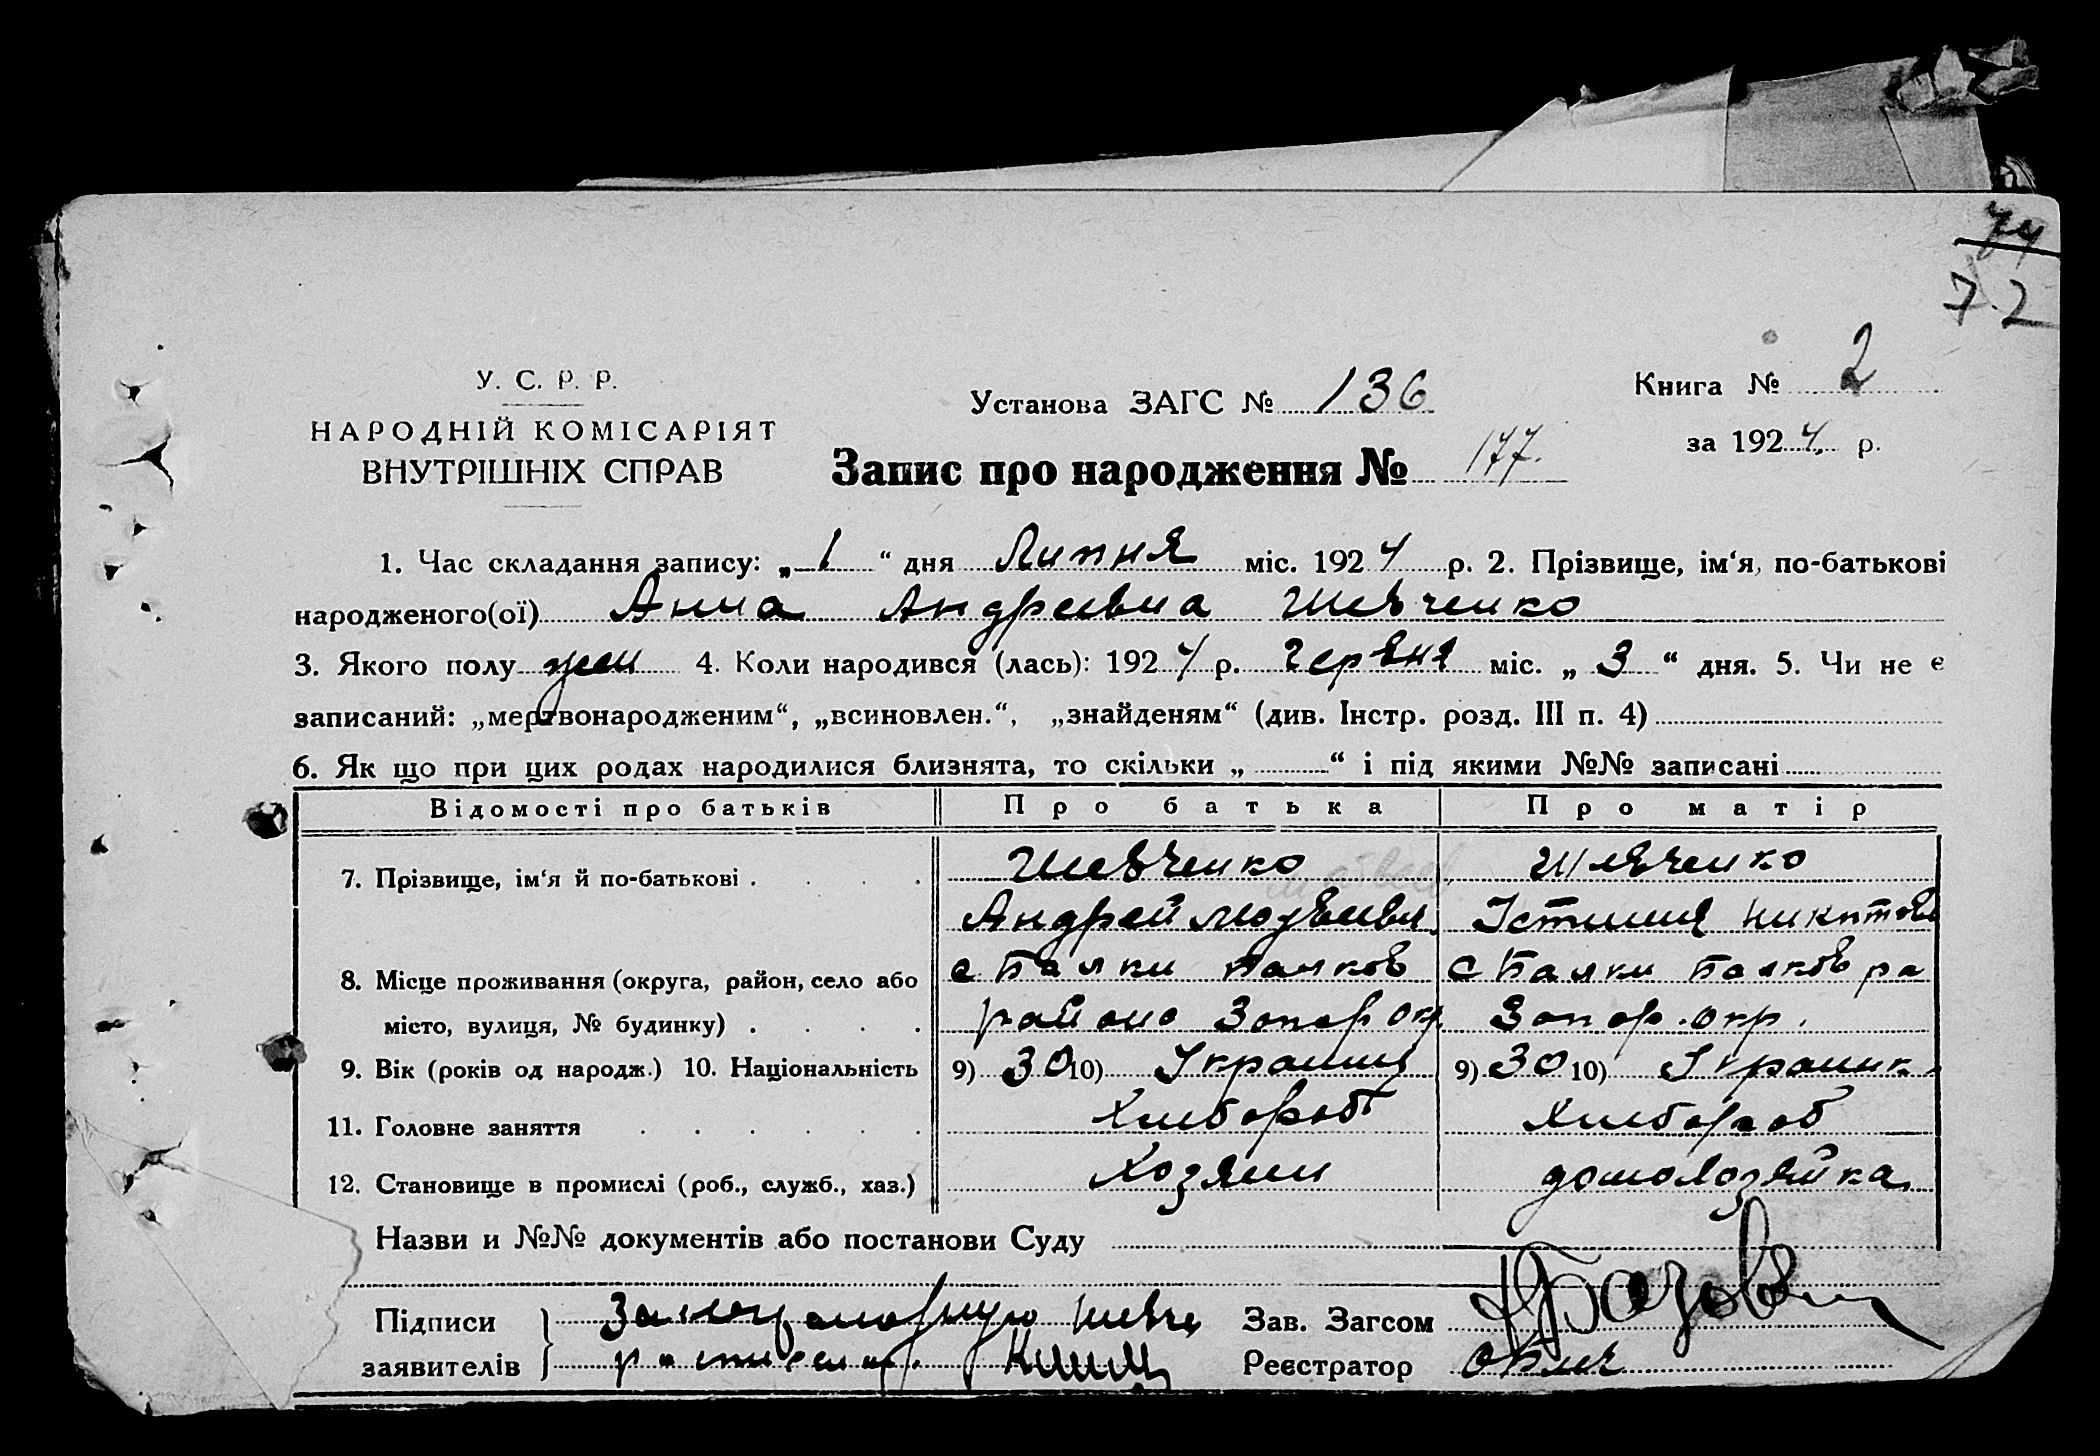 74
72
У. С. Р. Р.
НАРОДНІЙ КОМІСАРІЯТ
ВНУТРІШНІХ СПРАВ
Установа ЗАГС № 136
Книга № 2
за 1924 р.
Запис про народження № 177.
1. Час складання запису: „1“ дня Липня міс. 1924 р. 2. Прізвище, ім‘я, по-батькові
народженого(ої) Анна Андреевна Шевченко
3. Якого полу жен 4. Коли народився (лась): 1924 р. Червня міс. „3“ дня. 5. Чи не є
записаний: „мертвонародженим“, „всиновлен.“, „знайденям“ (див. Інстр. розд. III п. 4)
6. Як що при цих родах народилися близнята, то скільки „ “ і під якими №№ записані
Відомості про батьків Про батька Про матір
7. Прізвище, ім‘я й по-батькові . . . . Шевченко Шевченко
Андрей Устиния Никитов
8. Місце проживання (округа, район, село або с Балки Балков с Балки Балков ра
місто, вулиця, № будинку) . . . . района Запор окр Запор. окр.
9. Вік (років од народж.) 10. Національність 9) 30 10) Украинц 9) 30 10) Украинк.
11. Головне заняття . . . . . . Хлебороб Хлебороб
12. Становище в промислі (роб., служб., хаз.) Хозяин домохозяйка
Назви и №№ документів або постанови Суду
Підписи За неграмотную Шевче
заявителів
Зав. Загсом
Реєстратор